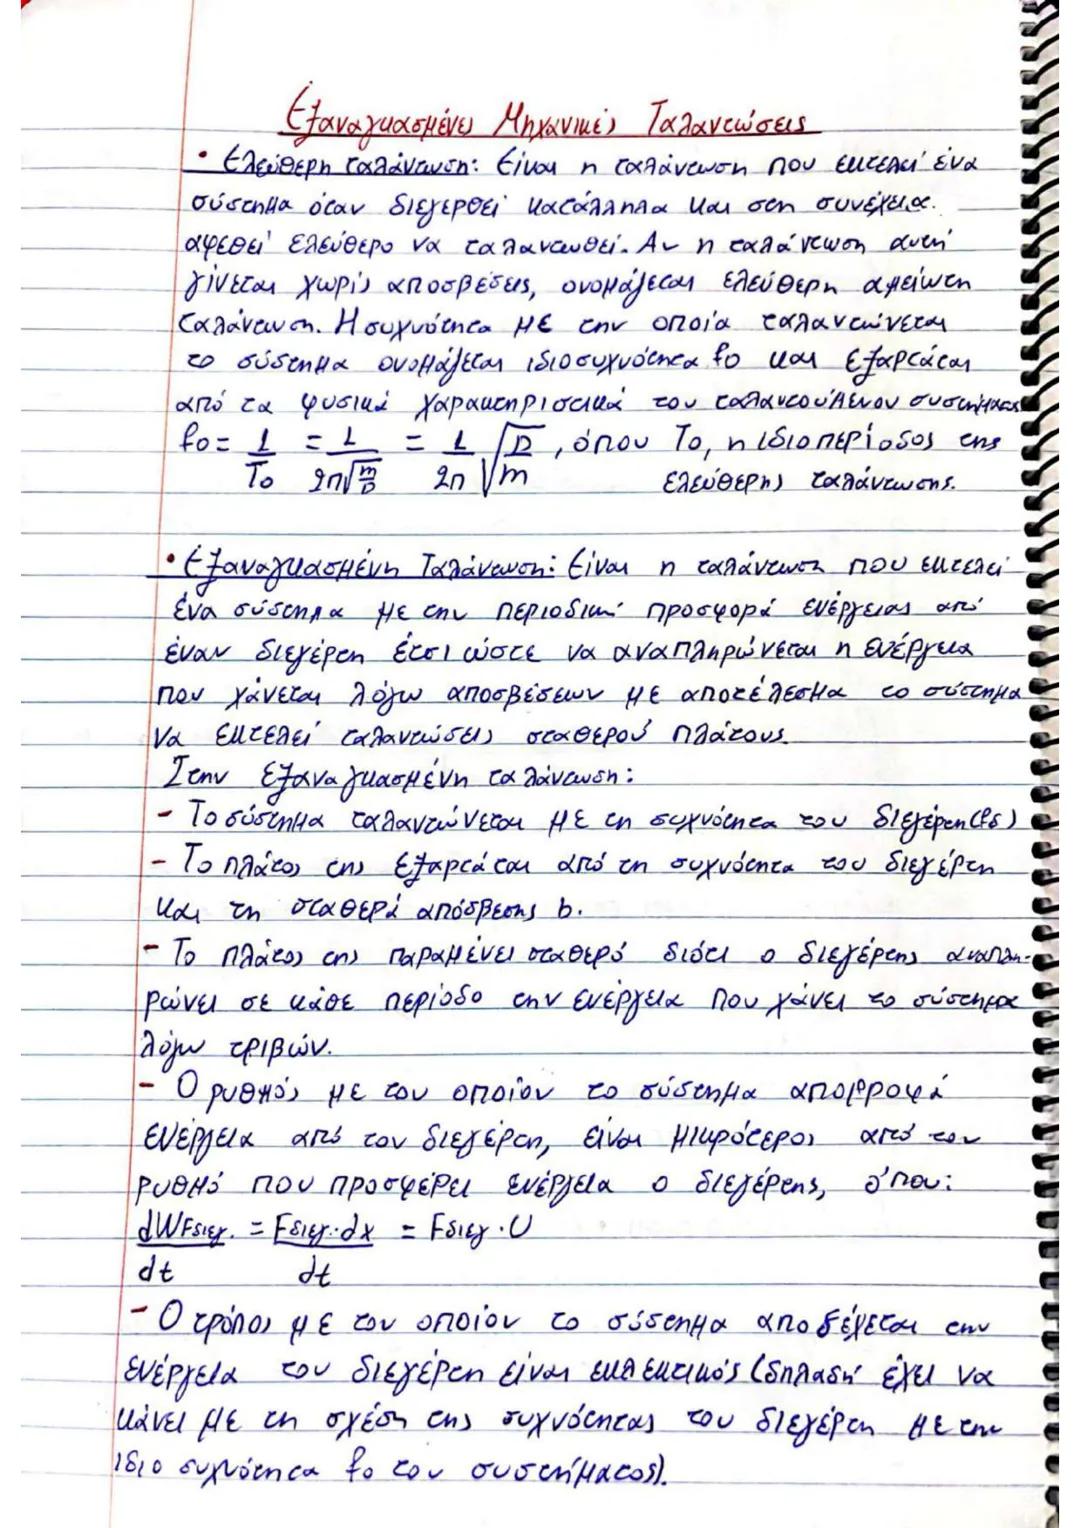 Εξαναγκασμένες Μηχανικές Ταλαντώσεις
• Ελεύθερη ταλάντωση: Είναι η ταλάντωση που εκτελεί ένα
σύστημα όταν διεγερθεί κατάλληλα και στη συνέχεια.
αφεθεί ελεύθερο να ταλαντωθεί. Αν η ταλάντωση αυτή
γίνεται χωρίς αποσβέσεις, ονομάζεται ελεύθερη αμείωτη
ταλάντωση. Η συχνότητα με την οποία ταλαντώνεται
το σύστημα ονομάζεται ιδιοσυχνότητα fo και εξαρτάται
από τα φυσικά χαρακτηριστικά του ταλαντούμενου συστήματος
fo = 1/To = 1/2π√(m/D) = 1/2π √(D/m), όπου To, η ιδιοπερίοδος της
ελεύθερης ταλάντωσης.
• Εξαναγκασμένη Ταλάντωση: Είναι η ταλάντωση που εκτελεί
ένα σύστημα με την περιοδική προσφορά ενέργειας από
έναν διεγέρτη έτσι ώστε να αναπληρώνεται η ενέργεια
που χάνεται λόγω αποσβέσεων με αποτέλεσμα το σύστημα
να εκτελεί ταλαντώσεις σταθερού πλάτους.
Στην εξαναγκασμένη ταλάντωση:
- Το σύστημα ταλαντώνεται με τη συχνότητα του διεγέρτη (fδ)
- Το πλάτος της εξαρτάται από τη συχνότητα του διεγέρτη
και τη σταθερά απόσβεσης b.
- Το πλάτος της παραμένει σταθερό διότι ο διεγέρτης αναπλη-
ρώνει σε κάθε περίοδο την ενέργεια που χάνει το σύστημα
λόγω τριβών.
- Ο ρυθμός με τον οποίον το σύστημα απορροφά
ενέργεια από τον διεγέρτη, είναι μικρότερος από τον
ρυθμό που προσφέρει ενέργεια ο διεγέρτης, όπου:
dWFδιεγ./dt = Fδιεγ.·dx/dt = Fδιεγ·U
- Ο τρόπος με τον οποίον το σύστημα αποδέχεται την
ενέργεια του διεγέρτη είναι εκλεκτικός (δηλαδή έχει να
κάνει με τη σχέση της συχνότητας του διεγέρτη με την
ιδιοσυχνότητα fo του συστήματος).